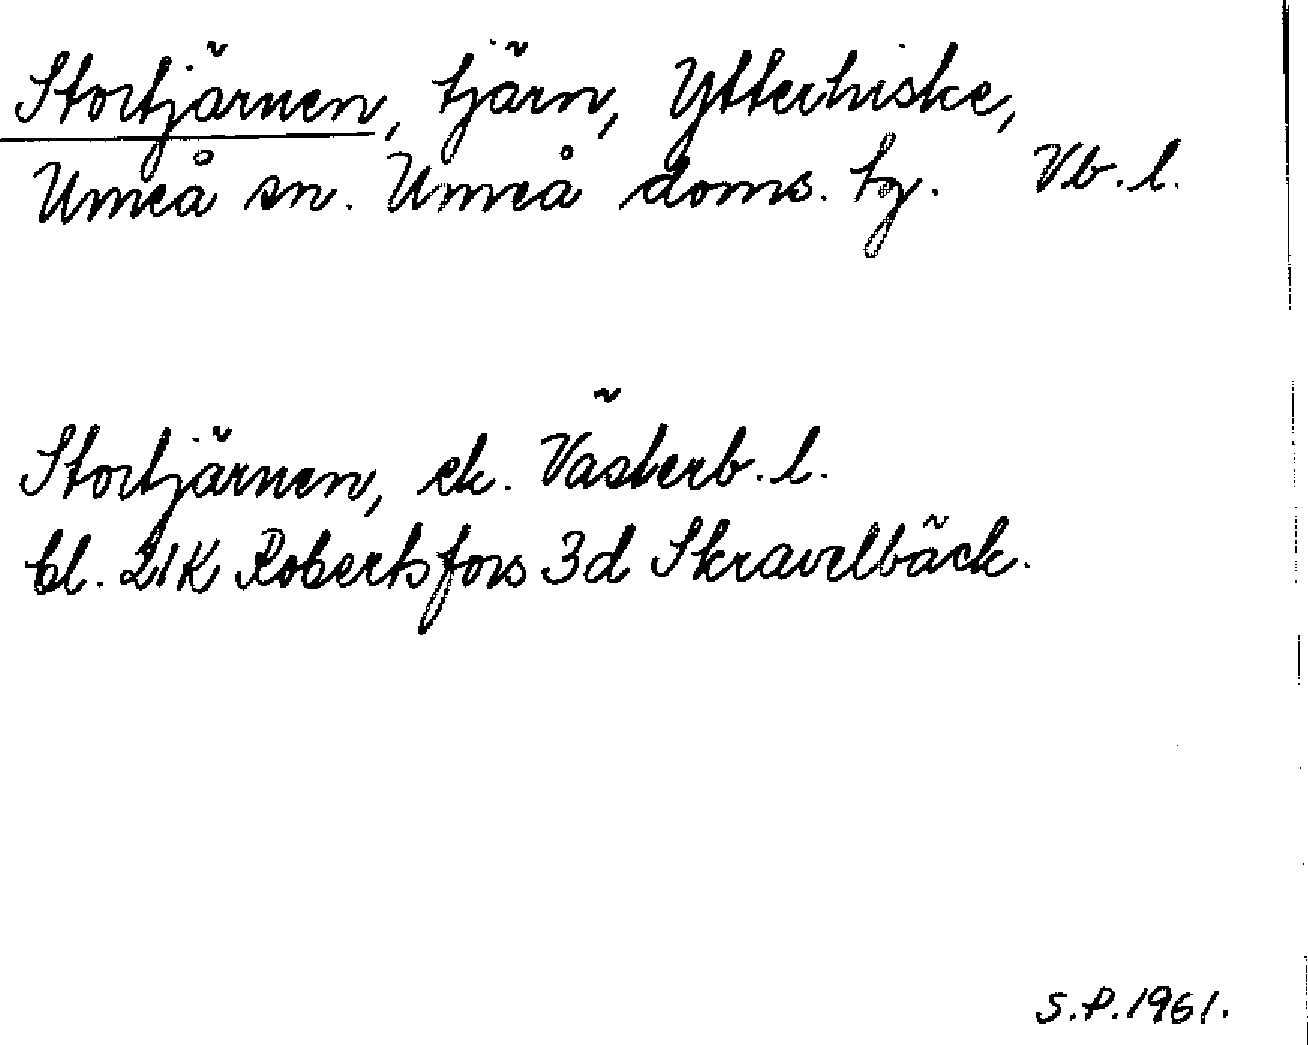 Stortjärnen, tjärn, Ytterhiske,
Umeå sn. Umeå doms. tg. Vb. l.
Stortjärnen, ek. Västerb. l.
bl. 21K Robertsfors 3d Skravelbäck.
S.P. 1961.